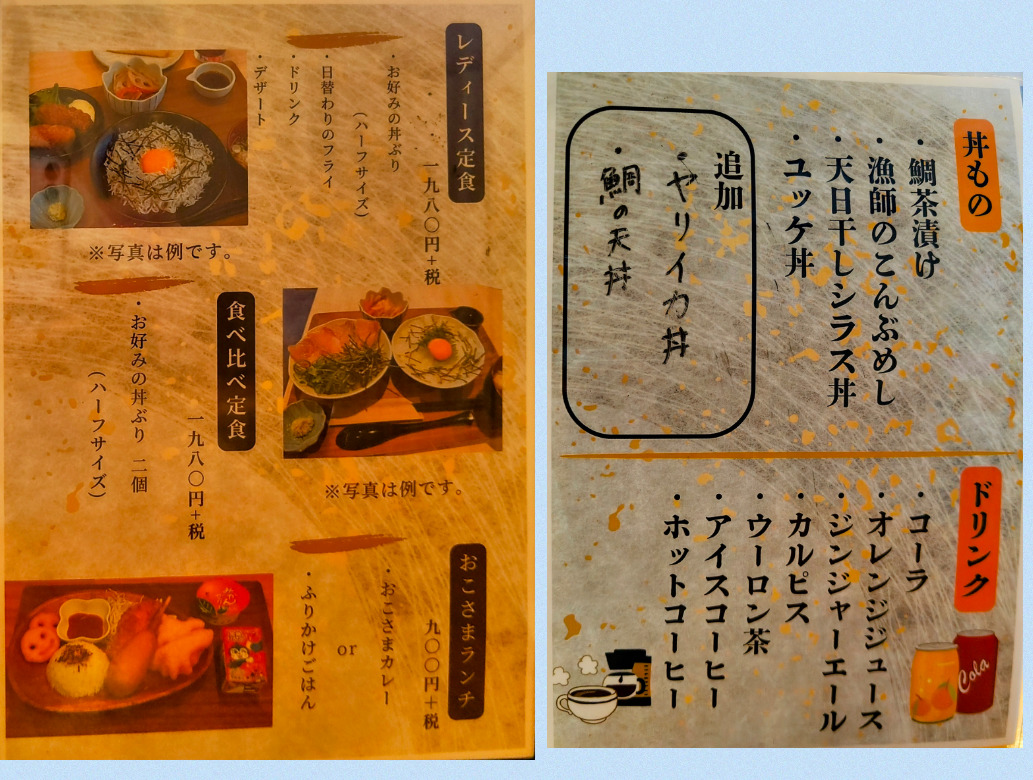 レディース定食
一九八〇円+税
・お好みの丼ぶり
(ハーフサイズ)
・日替わりのフライ
・ドリンク
・デザート
※写真は例です。
食べ比べ定食
一九八〇円+税
・お好みの丼ぶり 二個
(ハーフサイズ)
※写真は例です。
おこさまランチ
九〇〇円+税
・おこさまカレー
or
・ふりかけごはん
丼もの
・鯛茶漬け
・漁師のこんぶめし
・天日干しシラス丼
・ユッケ丼
追加
・ヤリイカ丼
・鯛の天丼
ドリンク
・コーラ
・オレンジジュース
・ジンジャーエール
・カルピス
・ウーロン茶
・アイスコーヒー
・ホットコーヒー
Cola